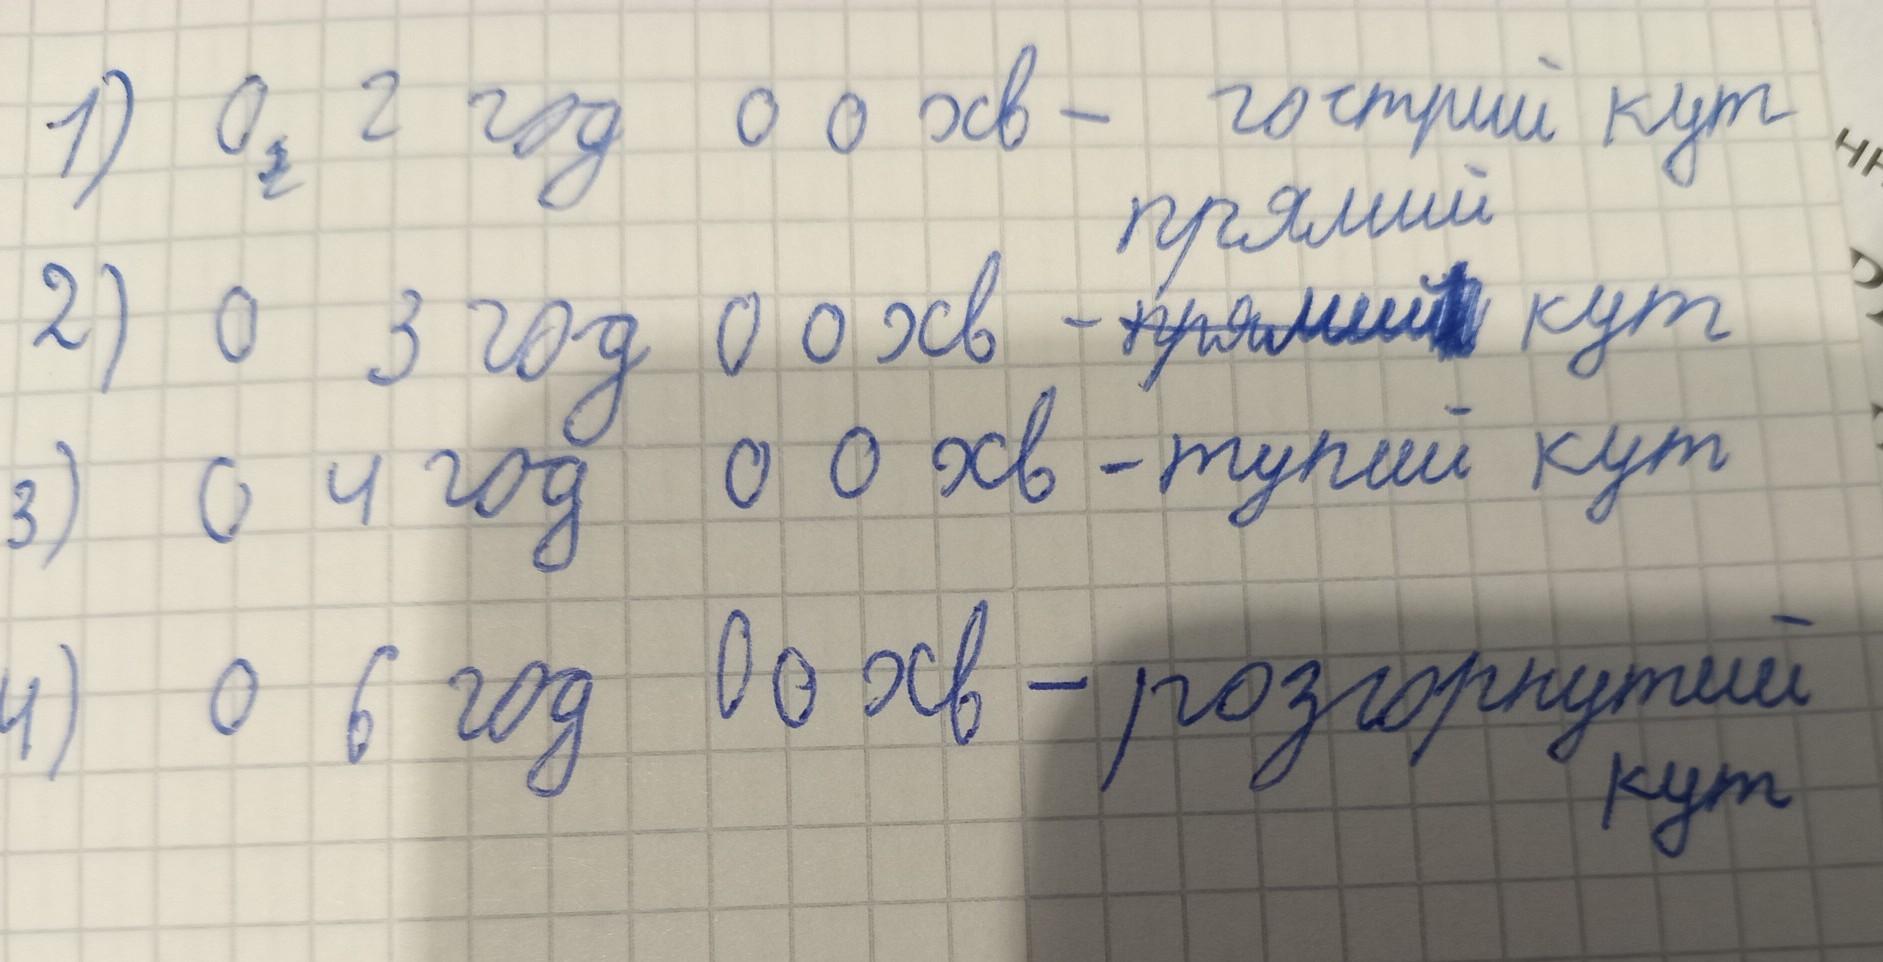 1) 0 2 год 00 хв - гострий кут
прямий
2) 0 3 год 00 хв - прямий кут
3) 0 4 год 00 хв - тупий кут
4) 0 6 год 00 хв - розгорнутий
кут